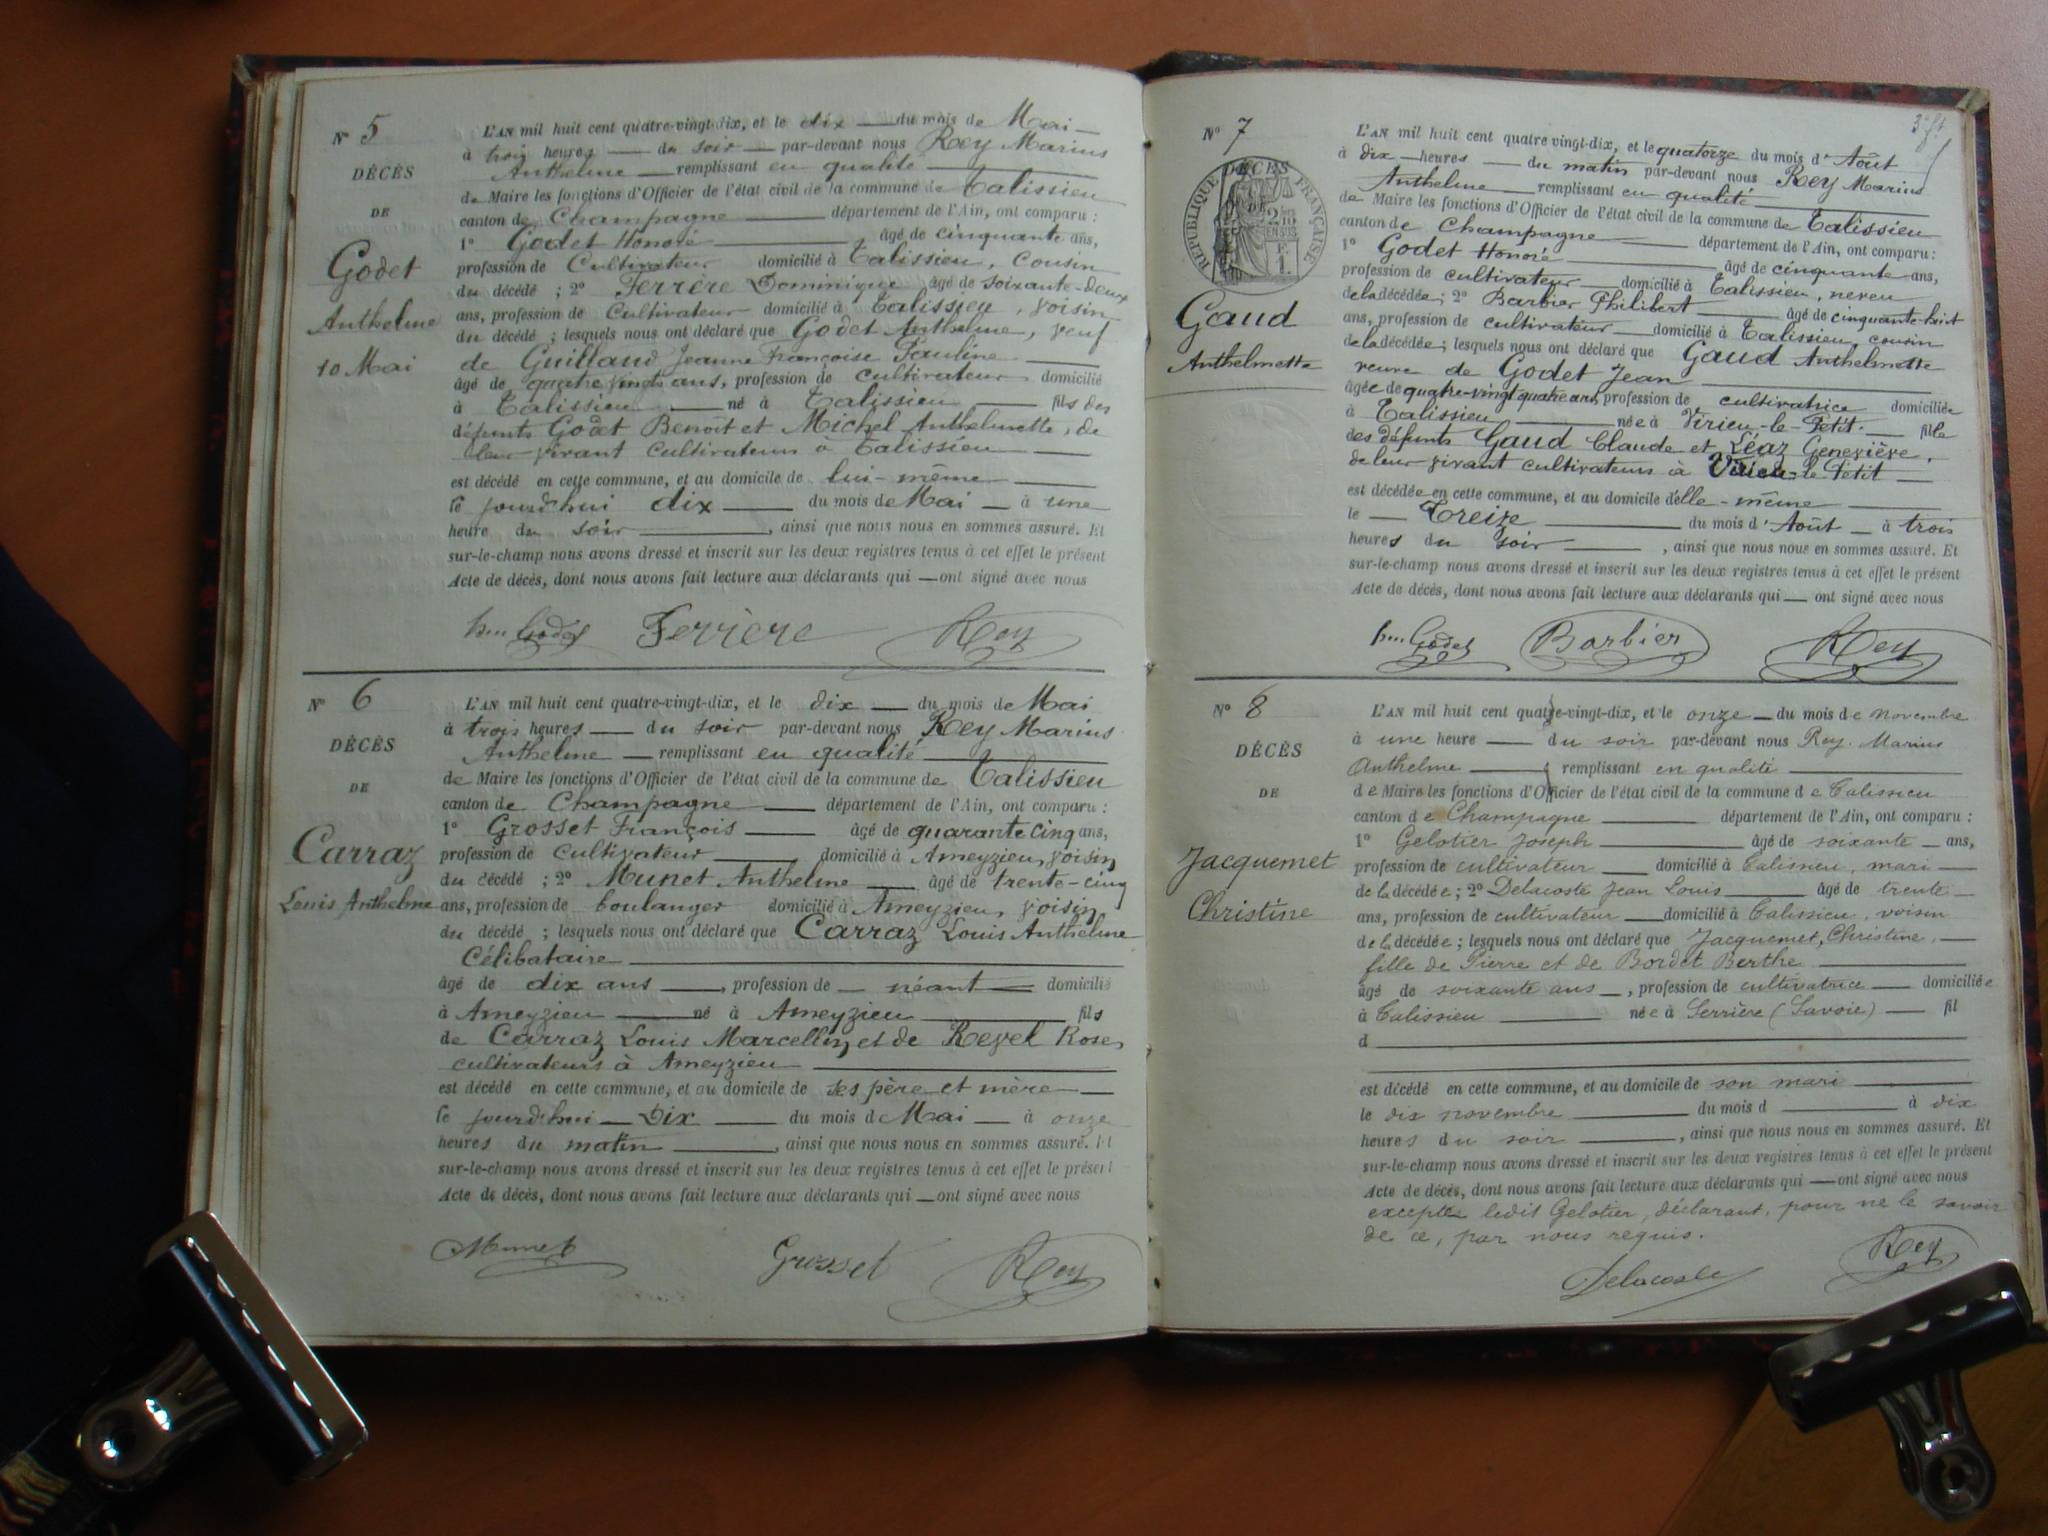 N° 5
DÉCÈS
DE
Godet
Anthelme
10 Mai
L'AN mil huit cent quatre-vingt-dix, et le dix — du mois de Mai —
à trois heures — du soir — par-devant nous Rey Marius
Anthelme — remplissant en qualité —
de Maire les fonctions d'Officier de l'état civil de la commune de Talissieu
canton de Champagne — département de l'Ain, ont comparu :
1° Godet Honoré — âgé de cinquante ans,
profession de Cultivateur domicilié à Talissieu, cousin
du décédé ; 2° Ferrère Dominique âgé de soixante-deux
ans, profession de Cultivateur domicilié à Talissieu, voisin
du décédé ; lesquels nous ont déclaré que Godet Anthelme, veuf
de Guilland Jeanne Françoise Pauline —
âgé de quatre vingts ans, profession de cultivateur domicilié
à Talissieu — né à Talissieu — fils des
défunts Godet Benoit et Michel Anthelmette, de
leur vivant cultivateurs à Talissieu —
est décédé en cette commune, et au domicile de lui-même —
le jourd'hui dix — du mois de Mai — à une
heure du soir —, ainsi que nous nous en sommes assuré. Et
sur-le-champ nous avons dressé et inscrit sur les deux registres tenus à cet effet le présent
Acte de décès, dont nous avons fait lecture aux déclarants qui — ont signé avec nous
hre Godet Ferrère Rey
N° 6
DÉCÈS
DE
Carraz
Louis Anthelme
L'AN mil huit cent quatre-vingt-dix, et le dix — du mois de Mai
à trois heures — du soir par-devant nous Rey Marius
Anthelme — remplissant en qualité —
de Maire les fonctions d'Officier de l'état civil de la commune de Talissieu
canton de Champagne — département de l'Ain, ont comparu :
1° Grosset François — âgé de quarante cinq ans,
profession de cultivateur — domicilié à Ameyzieu, voisin
du décédé ; 2° Munet Anthelme — âgé de trente-cinq
ans, profession de boulanger domicilié à Ameyzieu, voisin
du décédé ; lesquels nous ont déclaré que Carraz Louis Anthelme
Célibataire —
âgé de dix ans —, profession de — néant — domicilié
à Ameyzieu — né à Ameyzieu — fils
de Carraz Louis Marcellin, et de Revel Rose,
cultivateurs à Ameyzieu —
est décédé en cette commune, et au domicile de ses père et mère —
le jourd'hui — Dix — du mois de Mai — à onze
heures du matin —, ainsi que nous nous en sommes assuré. Et
sur-le-champ nous avons dressé et inscrit sur les deux registres tenus à cet effet le présent
Acte de décès, dont nous avons fait lecture aux déclarants qui — ont signé avec nous
Munet Grosset Rey
N° 7
DÉCÈS
RÉPUBLIQUE FRANÇAISE
Gaud
Anthelmette
L'AN mil huit cent quatre vingt-dix, et le quatorze du mois d'Août
à dix — heures — du matin par-devant nous Rey Marius
Anthelme — remplissant en qualité —
de Maire les fonctions d'Officier de l'état civil de la commune de Talissieu
canton de Champagne — département de l'Ain, ont comparu :
1° Godet Honoré — âgé de cinquante ans,
profession de cultivateur — domicilié à Talissieu, neveu
de la décédée ; 2° Barbier Philibert — âgé de cinquante-huit
ans, profession de cultivateur — domicilié à Talissieu, cousin
de la décédée ; lesquels nous ont déclaré que Gaud Anthelmette
veuve de Godet Jean —
âgée de quatre-vingt quatre ans, profession de cultivatrice domiciliée
à Talissieu — née à Virieu-le-Petit. — fille
des défunts Gaud Claude et Léaz Geneviève,
de leur vivant cultivateurs à Virieu-le Petit —
est décédée en cette commune, et au domicile d'elle-même —
le — Treize — du mois d'Août — à trois
heures du soir —, ainsi que nous nous en sommes assuré. Et
sur-le-champ nous avons dressé et inscrit sur les deux registres tenus à cet effet le présent
Acte de décès, dont nous avons fait lecture aux déclarants qui — ont signé avec nous
hre Godet Barbier Rey
N° 8
DÉCÈS
DE
Jacquemet
Christine
L'AN mil huit cent quatre-vingt-dix, et le onze — du mois de novembre
à une heure — du soir par-devant nous Rey Marius
Anthelme — remplissant en qualité —
de Maire les fonctions d'Officier de l'état civil de la commune de Talissieu
canton de Champagne — département de l'Ain, ont comparu :
1° Gelotier Joseph — âgé de soixante — ans,
profession de cultivateur — domicilié à Talissieu, mari —
de la décédée ; 2° Delacoste Jean Louis — âgé de trente —
ans, profession de cultivateur — domicilié à Talissieu, voisin
de la décédée ; lesquels nous ont déclaré que Jacquemet, Christine, —
fille de Pierre et de Bordet Berthe —
âgé de soixante ans —, profession de cultivatrice — domiciliée
à Talissieu — née à Serrière (Savoie) — fil
d —
est décédé en cette commune, et au domicile de son mari —
le dix novembre — du mois d — à dix
heures du soir —, ainsi que nous nous en sommes assuré. Et
sur-le-champ nous avons dressé et inscrit sur les deux registres tenus à cet effet le présent
Acte de décès, dont nous avons fait lecture aux déclarants qui — ont signé avec nous
excepté ledit Gelotier, déclarant, pour ne le savoir
de ce, par nous requis.
Delacoste Rey